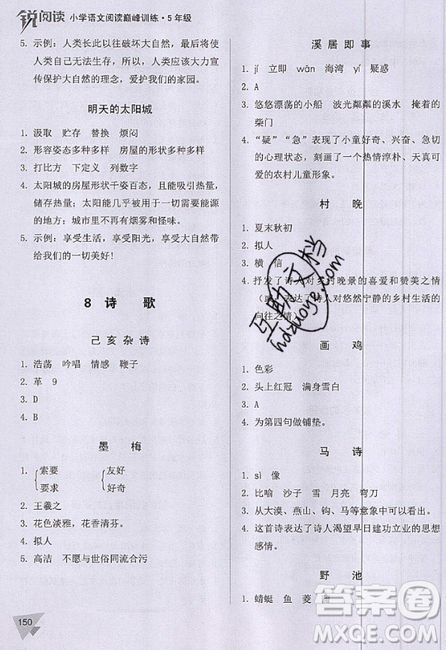 锐阅读 小学语文阅读巅峰训练·5年级
5. 示例：人类长此以往破坏大自然，最后人类将自己无法生存，所以，人类应该大力宣传保护大自然的意义。
明天的太阳城
1. 汲取 贮存 替换 烦闷
2. 形容姿态多种多样 房屋的形状多种多样
3. 打比方 下定义 列数字
4. 太阳城的房屋形状千姿百态，且能吸热量，
储存热量；太阳能几乎被用到城市的每一个
地方；城市里不再有烟雾和怪味。
5. 示例：享受生活、享受阳光，感受大自然带
给我们的一切美好！
8 诗 歌
己亥杂诗
1. 浩荡 吟唱 情感 鞭子
2. 革 9
3. D
4. B
墨 梅
1. 索要 友好
要求 好奇
2. 王羲之
3. 花色淡雅，花香清芬。
4. 拟人
5. 高洁 不愿与世俗同流合污
150
溪居即事
1. jí 立即 wàn 海湾 yí 疑惑
2. A
3. 悠悠漂荡的小船 波光粼粼的湖面 半掩着的
柴门
4. “疑”“急”表现了小童好奇、兴奋、急切
的心理状态，刻画了一个热情淳朴、天真可
爱的农村儿童形象。
村 晚
1. 夏末秋初
2. 拟人
3. 横 信
4. 抒发了诗人对乡村晚景的喜爱和赞美之情
表达了诗人对悠然宁静的乡村生活的
向往之情
画 鸡
1. 色彩
2. 头上红冠 满身雪白
3. A
4. 为第四句做铺垫。
马 诗
1. sì 像
2. 比喻 沙子 雪 月亮 弯刀
3. 从大漠、燕山、钩、马等可以看出。
4. 这首诗表达了诗人渴望早日建功立业的迫切
感情。
野 池
1. 蜻蜓 鱼 菱
互助文档
hdzuoye.com
答案圈
MXQE.COM